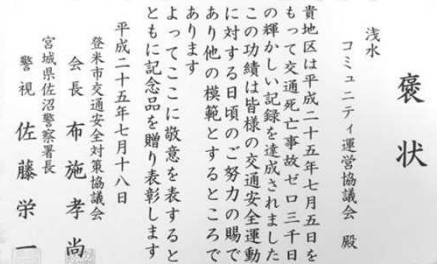 褒状
浅水
コミュニティ運営協議会 殿
貴地区は平成二十五年七月五日を
もって交通死亡事故ゼロ三千日
の輝かしい記録を達成されました
この功績は皆様の交通安全運動
に対する日頃のご努力の賜で
あり他の模範とするところで
あります
よってここに敬意を表すると
ともに記念品を贈り表彰します
平成二十五年七月十八日
登米市交通安全対策協議会
会長 布施孝尚
宮城県佐沼警察署長
警視 佐藤栄一